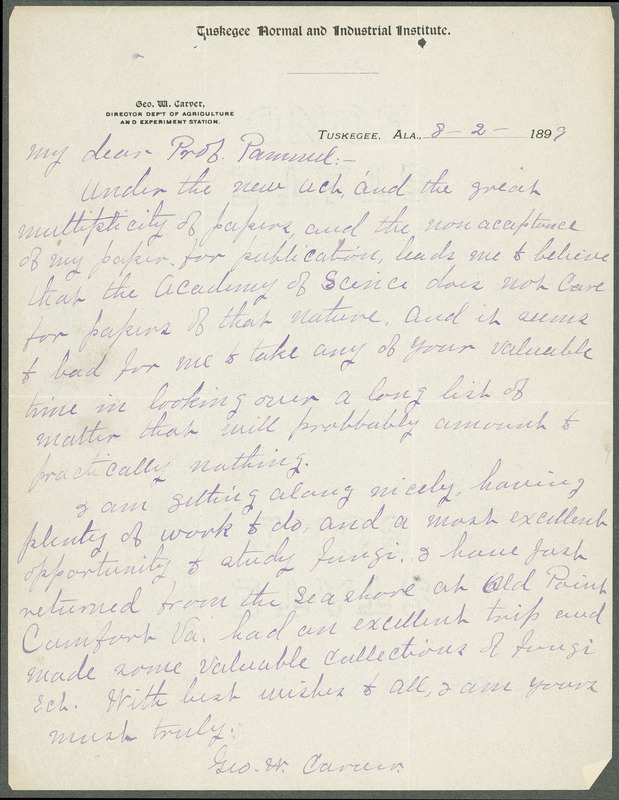 Tuskegee Normal and Industrial Institute.
Geo. W. Carver,
DIRECTOR DEP'T OF AGRICULTURE
AND EXPERIMENT STATION.
TUSKEGEE, ALA., 8-2- 1899
My dear Prof. Pammel:-
Under the new act, and the great
multiplicity of papers, and the nonacceptance
of my paper for publication, leads me to believe
that the Academy of Science does not care
for papers of that nature. and it seems
to bad for me to take any of your valuable
time in looking over a long list of
matter that will probbably amount to
practically nothing.
I am getting along nicely, having
plenty of work to do, and a most excellent
opportunity to study fungi. I have just
returned from the seashore at Old Point
Comfort Va. had an excellent trip and
made some valuable collections of fungi
ect. With best wishes to all, I am yours
most truly.
Geo. W. Carver.